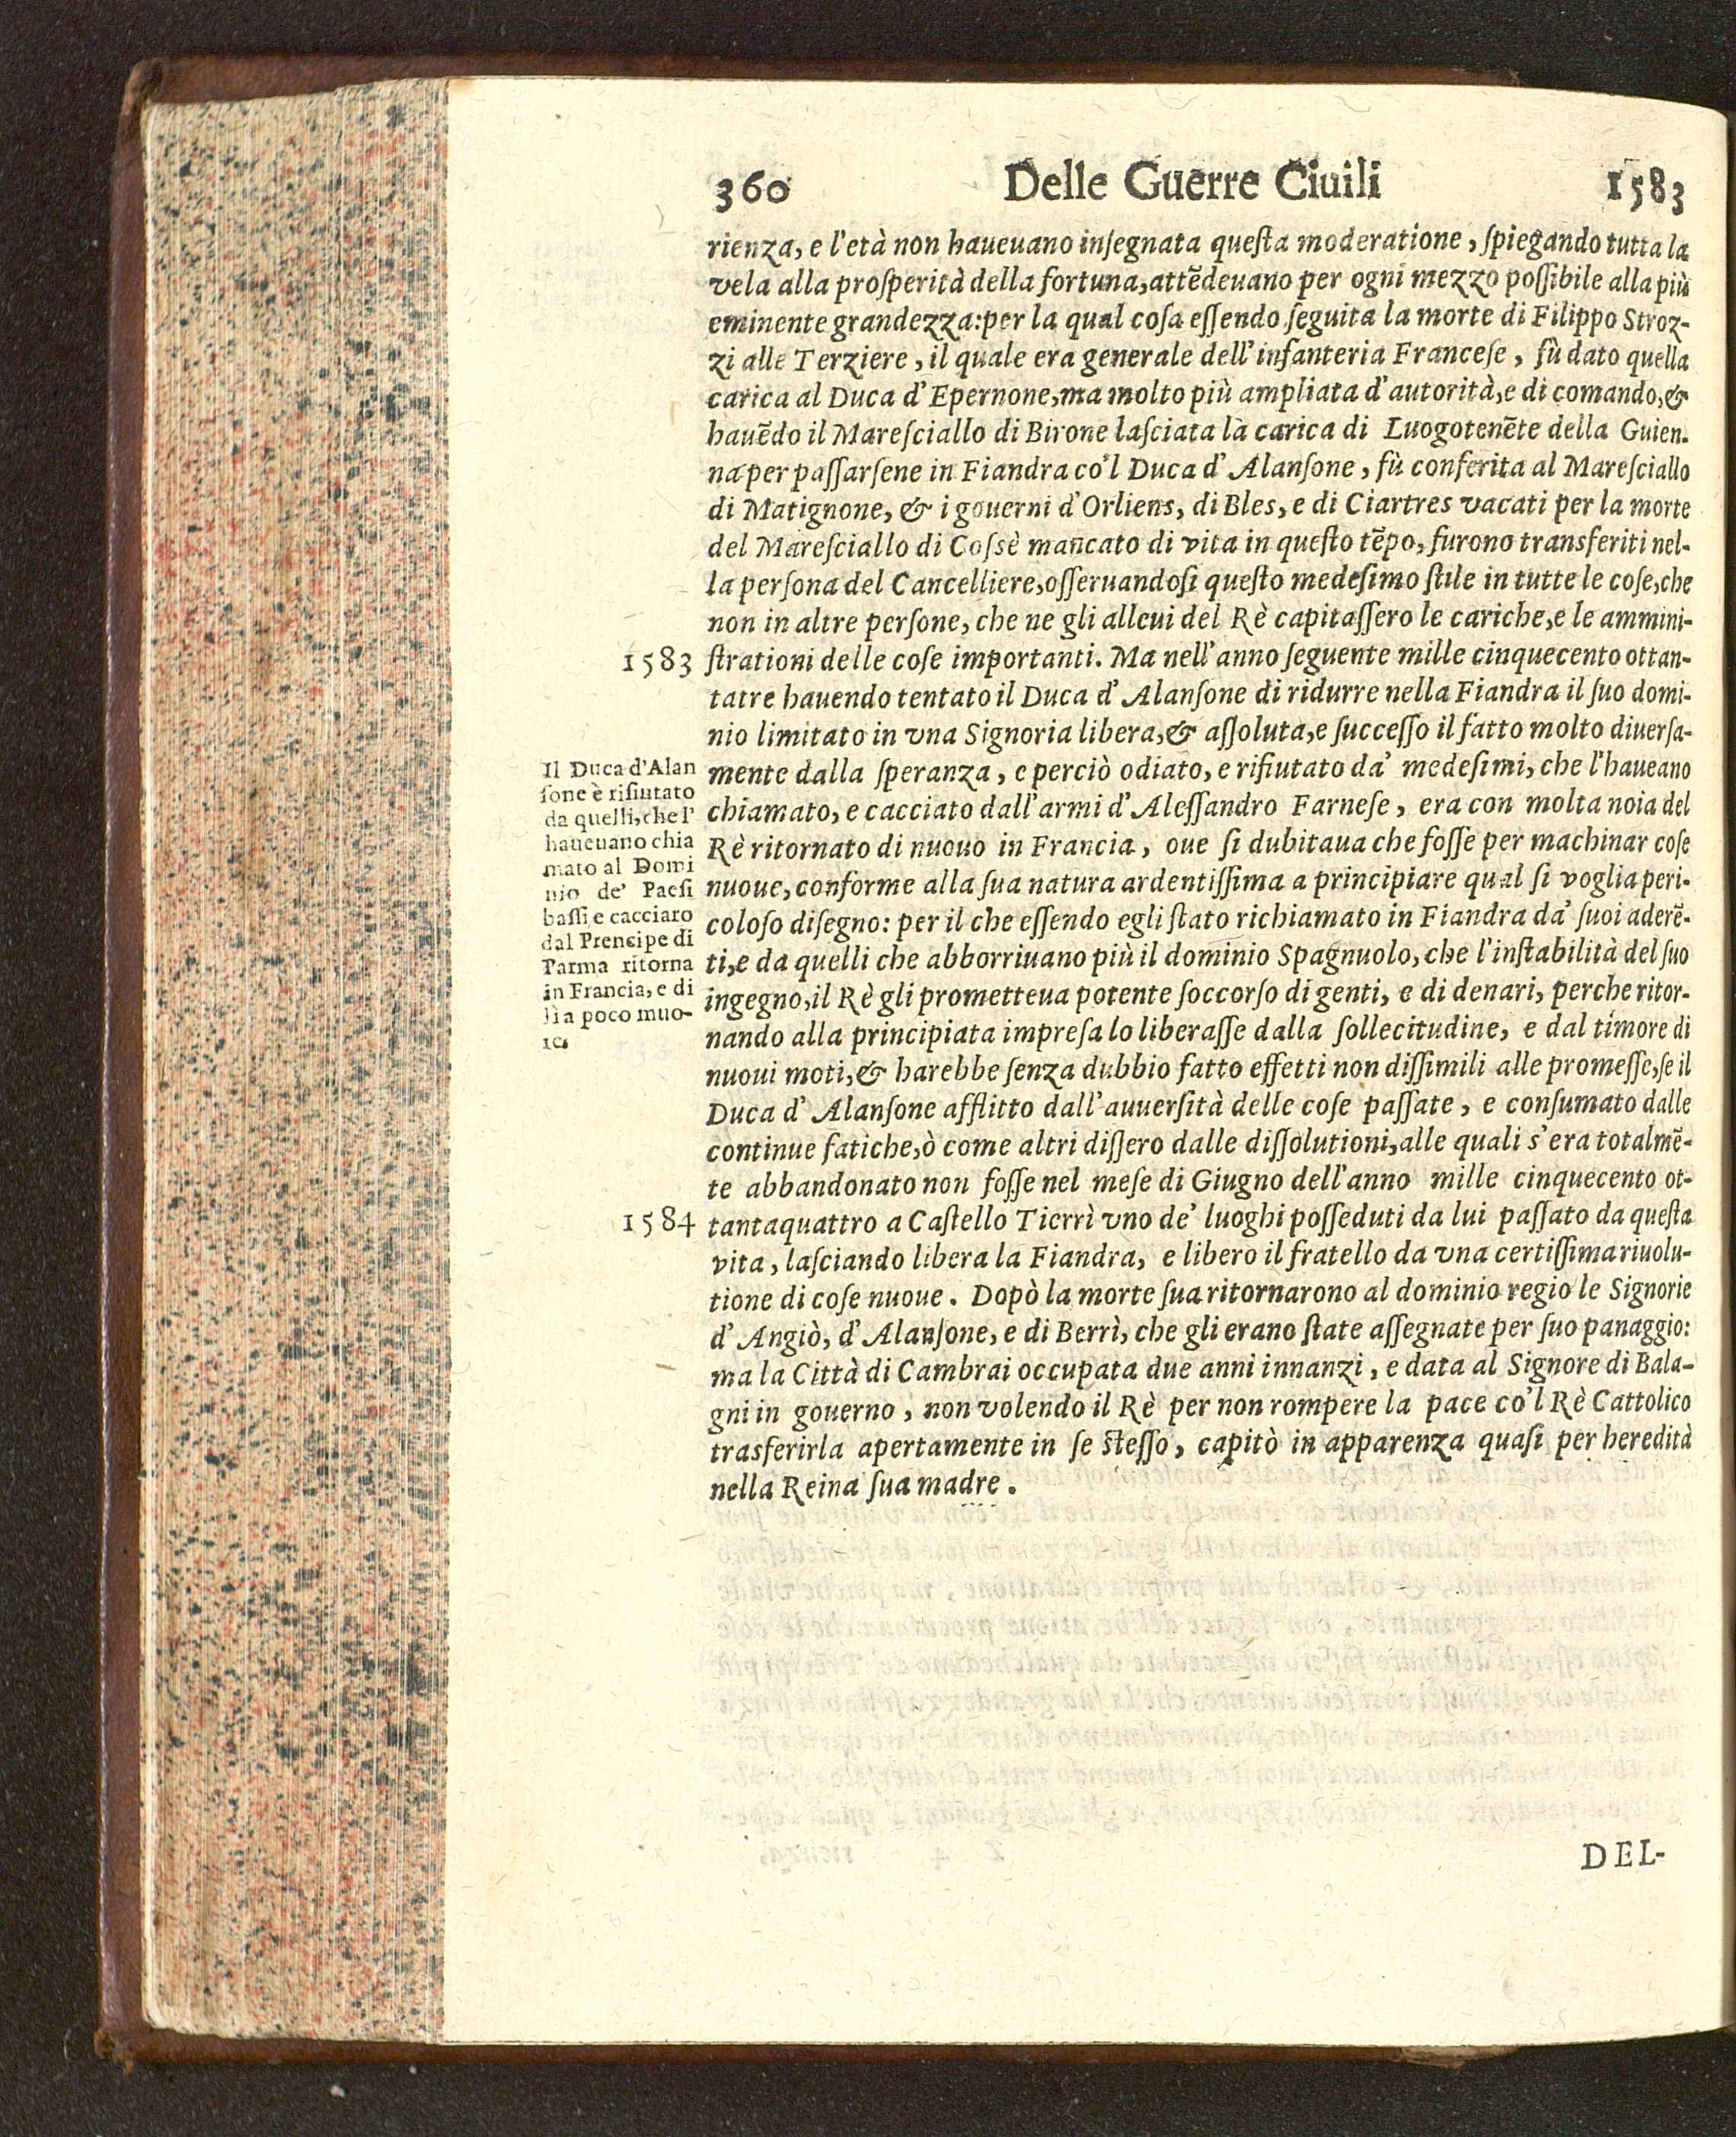 360 Delle Guerre Ciuili 1583
rienza, e l'età non haueuano inſegnata queſta moderatione, ſpiegando tutta la
vela alla proſperità della fortuna, attēdeuano per ogni mezzo poſſibile alla più
eminente grandezza: per la qual coſa eſſendo ſeguita la morte di Filippo Stroz-
zi alle Terziere, il quale era generale dell'infanteria Franceſe, fù dato quella
carica al Duca d'Epernone, ma molto più ampliata d'autorità, e di comando, &
hauēdo il Mareſciallo di Birone laſciata là carica di Luogotenēte della Guien-
na per paſſarſene in Fiandra co'l Duca d'Alanſone, fù conferita al Mareſciallo
di Matignone, & i gouerni d'Orliens, di Bles, e di Ciartres vacati per la morte
del Mareſciallo di Coſsè mañcato di vita in queſto tēpo, furono transferiti nel-
la perſona del Cancelliere, oſſeruandoſi queſto medeſimo ſtile in tutte le coſe, che
non in altre perſone, che ne gli alleui del Rè capitaſſero le cariche, e le ammini-
1583 ſtrationi delle coſe importanti. Ma nell'anno ſeguente mille cinquecento ottan-
tatre hauendo tentato il Duca d'Alanſone di ridurre nella Fiandra il ſuo domi-
nio limitato in vna Signoria libera, & aſſoluta, e ſucceſſo il fatto molto diuerſa-
mente dalla ſperanza, e perciò odiato, e rifiutato da' medeſimi, che l'haueano
chiamato, e cacciato dall'armi d'Aleſſandro Farneſe, era con molta noia del
Rè ritornato di nuouo in Francia, oue ſi dubitaua che foſſe per machinar coſe
nuoue, conforme alla ſua natura ardentiſſima a principiare qual ſi voglia peri-
coloſo diſegno: per il che eſſendo egli ſtato richiamato in Fiandra da' ſuoi aderē-
ti, e da quelli che abborriuano più il dominio Spagnuolo, che l'inſtabilità del ſuo
ingegno, il Rè gli prometteua potente ſoccorſo di genti, e di denari, perche ritor-
nando alla principiata impreſa lo liberaſſe dalla ſollecitudine, e dal timore di
nuoui moti, & harebbe ſenza dubbio fatto effetti non diſſimili alle promeſſe, ſe il
Duca d'Alanſone afflitto dall'auuerſità delle coſe paſſate, e conſumato dalle
continue fatiche, ò come altri diſſero dalle diſſolutioni, alle quali s'era totalmē-
te abbandonato non foſſe nel meſe di Giugno dell'anno mille cinquecento ot-
1584 tantaquattro a Caſtello Tierrì vno de' luoghi poſſeduti da lui paſſato da queſta
vita, laſciando libera la Fiandra, e libero il fratello da vna certiſſima riuolu-
tione di coſe nuoue. Dopò la morte ſua ritornarono al dominio regio le Signorie
d'Angiò, d'Alanſone, e di Berrì, che gli erano ſtate aſſegnate per ſuo panaggio:
ma la Città di Cambrai occupata due anni innanzi, e data al Signore di Bala-
gni in gouerno, non volendo il Rè per non rompere la pace co'l Rè Cattolico
trasferirla apertamente in ſe ſteſſo, capitò in apparenza quaſi per heredità
nella Reina ſua madre.
Il Duca d'Alan
ſone è rifiutato
da quelli, che l'
haueuano chia
mato al Domi
nio de' Paeſi
baſſi e cacciaro
dal Prencipe di
Parma ritorna
in Francia, e di
lì a poco muo-
re.
DEL-